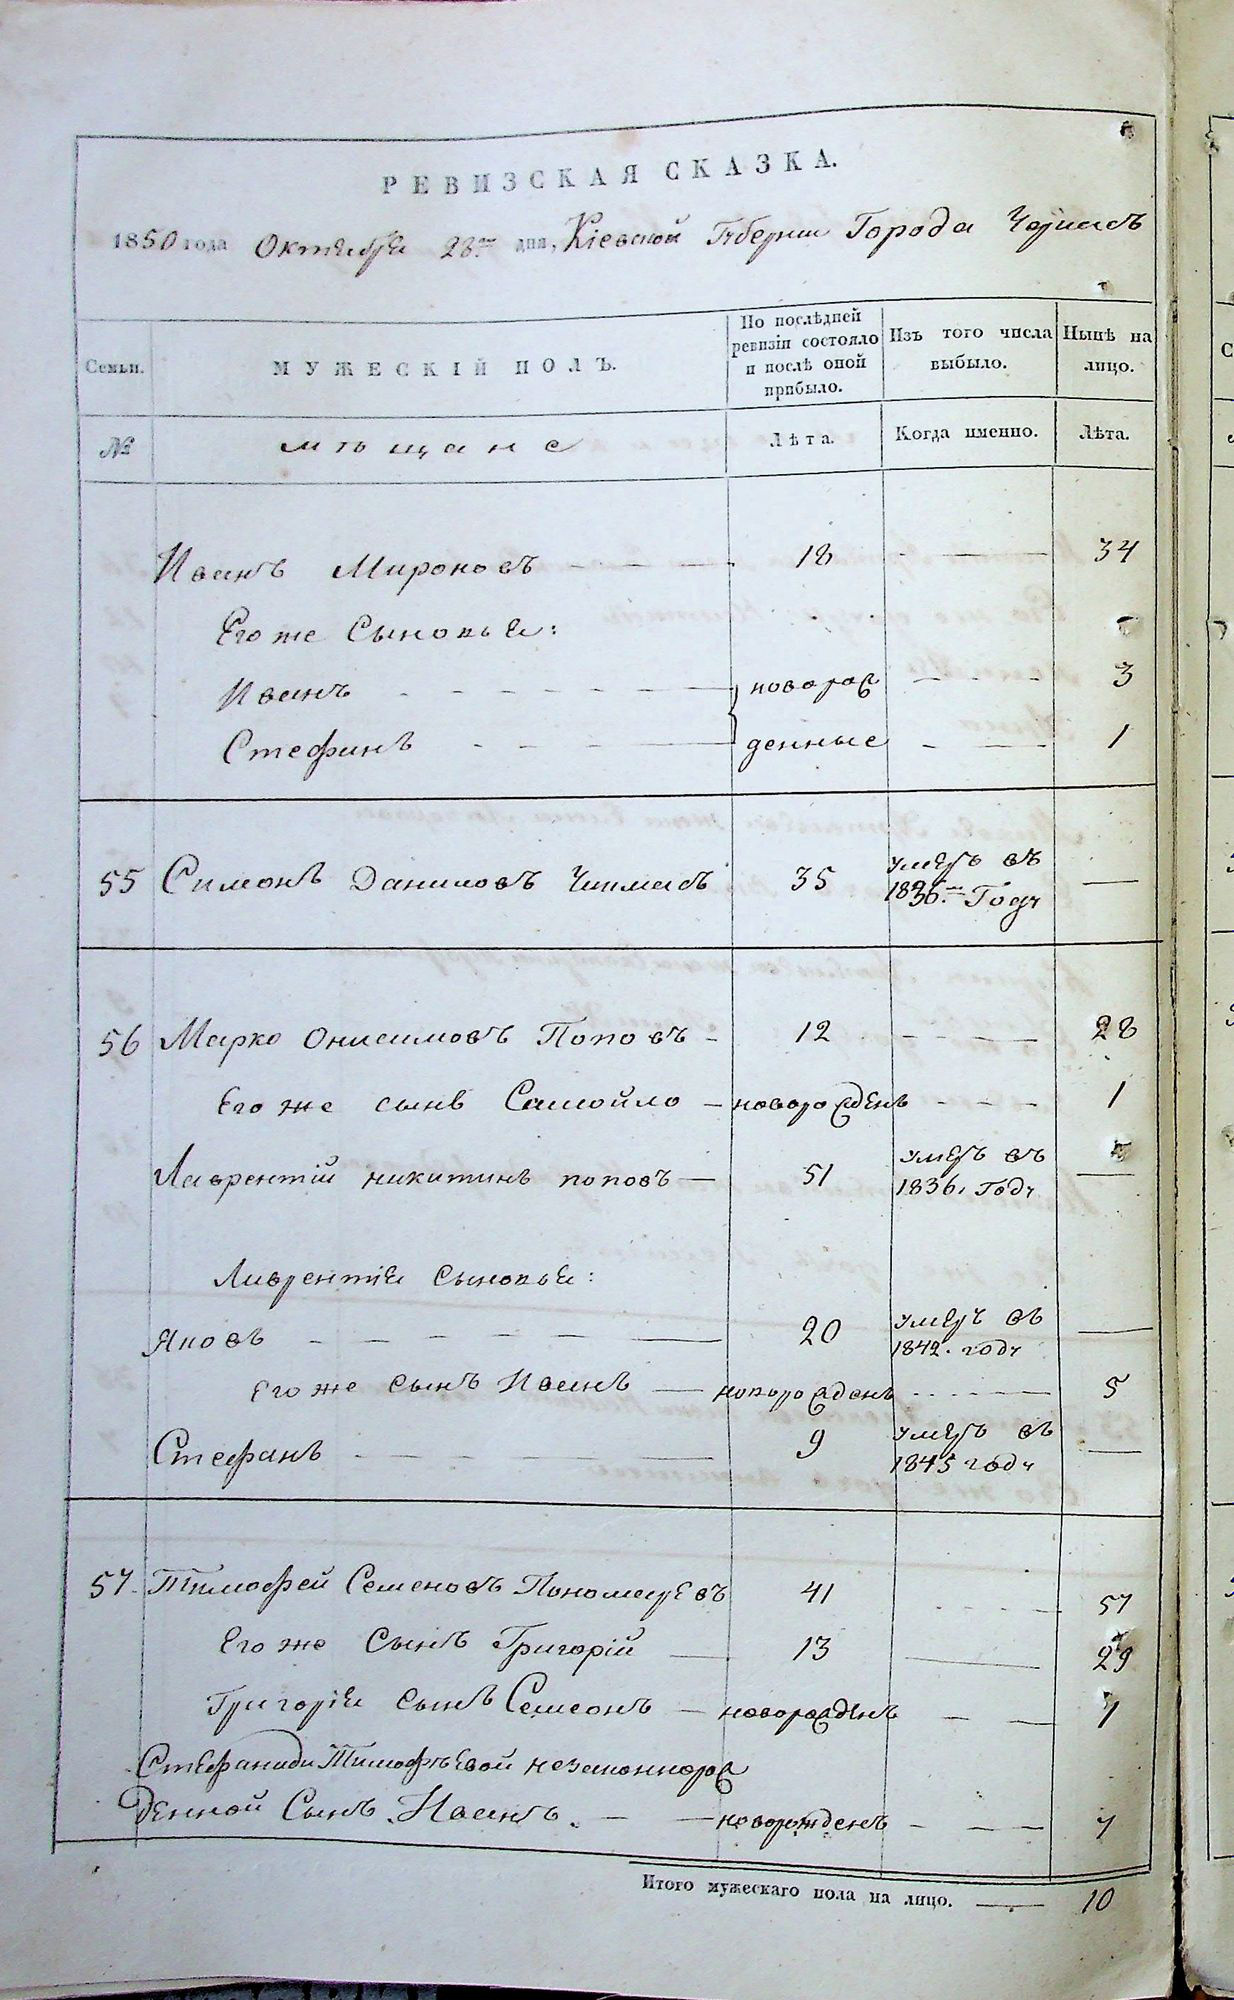 РЕВИЗСКАЯ СКАЗКА.
1850 года Октября 28го дня, Кіевской Губерніи Города Чернасъ
Семьи. МУЖЕСКІЙ ПОЛЪ. По послѣдней ревизіи состояло и послѣ оной прибыло. Изъ того числа выбыло. Нынѣ на лицо.
№ мѣщане Лѣта. Когда именно. Лѣта.
Иванъ Мироновъ 18 34
Его же Сыновья:
Иванъ новорож 3
Стефанъ денные 1
55 Симонъ Даниловъ 35 умеръ въ 1836.мъ Году
56 Марко Онисимовъ Поповъ 12 28
Его же сынъ Самойло новорожденъ 1
Лаврентій никитинъ поповъ 51 умеръ въ 1836. Году
Лаврентія сыновья:
Яковъ 20 умеръ въ 1842. году
Его же сынъ Иванъ новорожденъ 5
Стефанъ 9 умеръ въ 1845 году
57. Тимофей Семеновъ Пономаревъ 41 57
Его же Сынъ Григорій 13 29
Григорія сынъ Семеонъ новорожденъ 7
Стефаниды Тимофѣевой незаконнорож
денной Сынъ Иванъ. новорожденъ 7
Итого мужескаго пола на лицо. 10